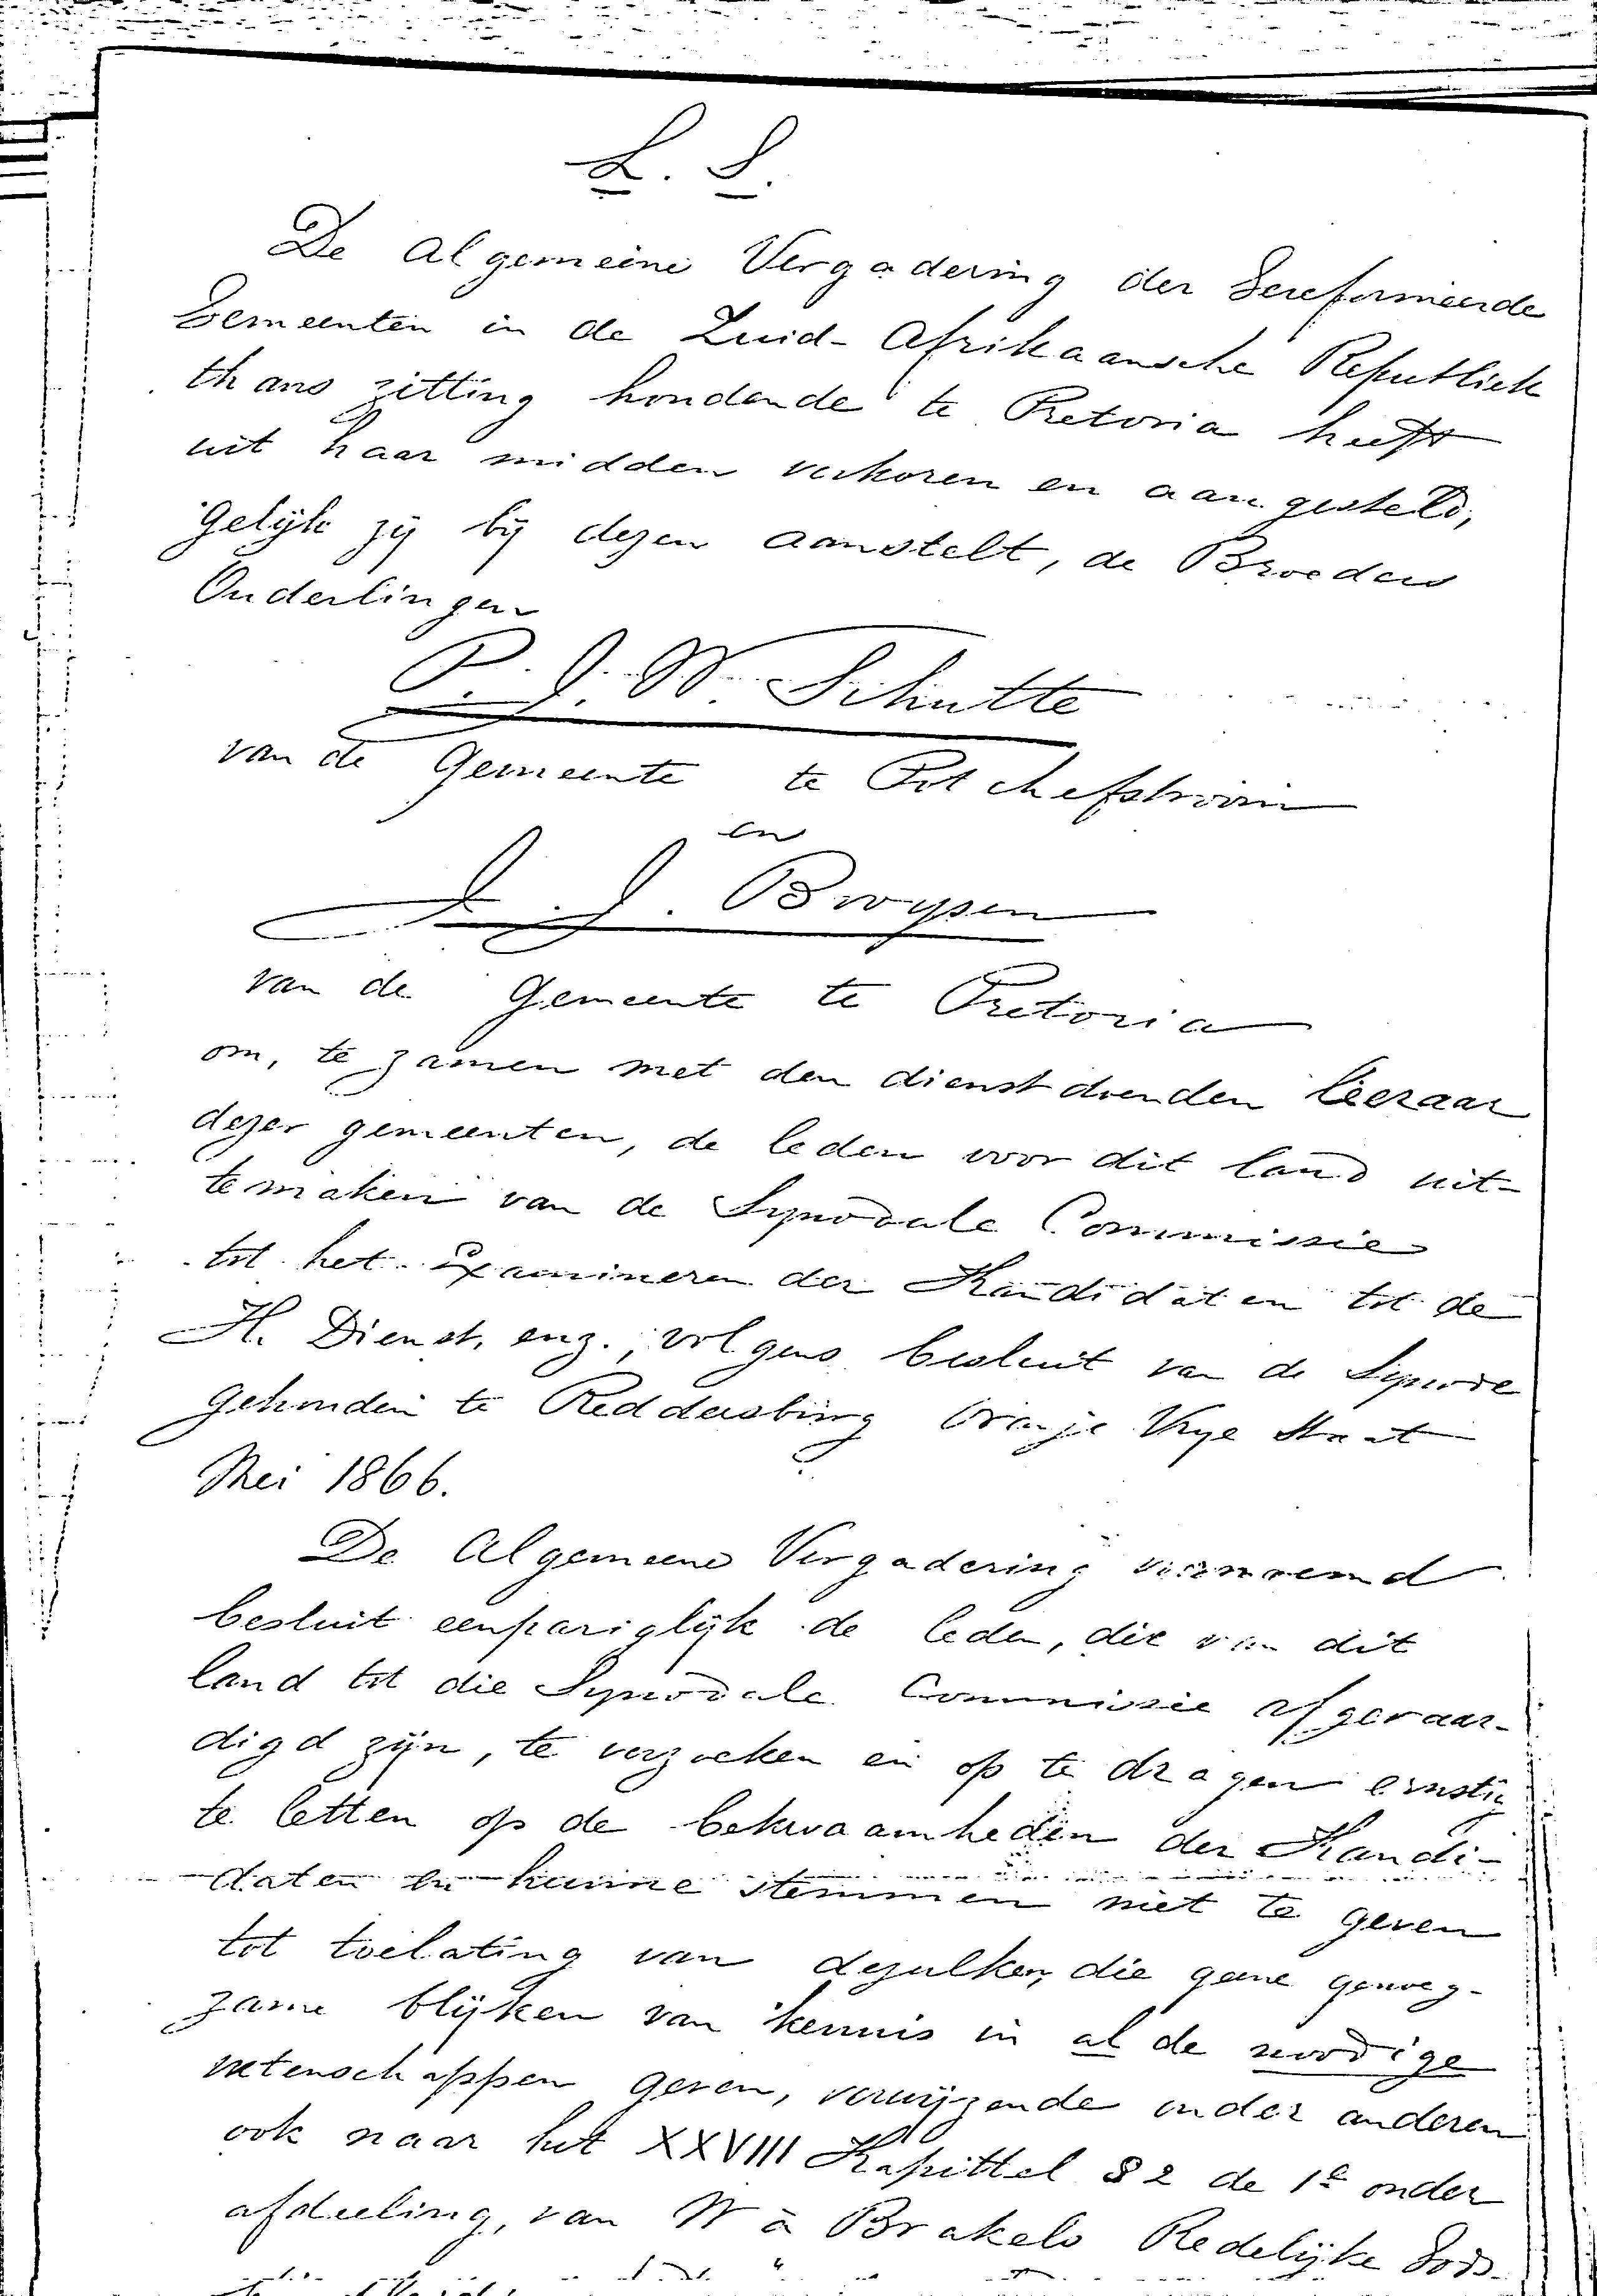 L. S.
De Algemeene Vergadering der Gereformeerde
Gemeenten in de Zuid-Afrikaansche Republiek
thans zitting houdende te Pretoria heeft
uit haar midden verkoren en aangesteld,
Gelijk zij bij dezen aanstelt, de Broeders
Ouderlingen
P. J. W. Schutte
van de Gemeente te Potchefstroom
en
J. J.
van de Gemeente te Pretoria
om, te zamen met den dienstdoenden leeraar
dezer gemeenten, de leden voor dit land uit-
temaken van de Synodale Commissie
tot het Examineren der Kandidaten tot de
H. Dienst, enz., volgens besluit van de Synode
gehouden te Reddersburg Oranje Vrye Staat
Mei 1866.
De Algemeene Vergadering voornoemd
besluit eenpariglijk de leden, die van dit
land tot die Synodale Commissie afgevaar-
digd zijn, te verzoeken en op te dragen ernstig
te letten op de bekwaamheden der Kandi-
daten en hunne stemmen niet te geven
tot toelating van dezulken, die geene genoeg-
zame blijken van kennis in al de noodige
wetenschappen geven, verwijzende onder anderen
ook naar het XXVIII Kapittel § 2 de 1e onder
afdeeling, van W à Brakels Redelijke Gods-